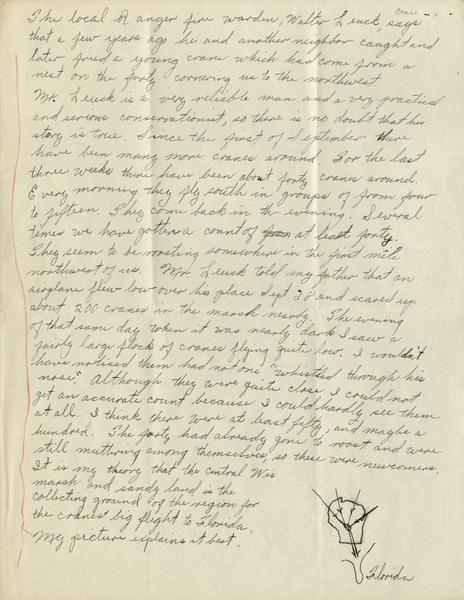 Crane
The local Ranger fire warden, Walter Leuck, says
that a few years ago he and another neighbor caught and
later freed a young crane which had come from a
nest on the forty cornering us to the northwest.
Mr. Leuck is a very reliable man and a very practical
and serious conservationist, so there is no doubt that his
story is true. Since the first of September there
have been many more cranes around. For the last
three weeks there have been about forty cranes around.
Every morning they fly south in groups of from four
to fifteen. They come back in the evening. Several
times we have gotten a count of at least forty.
They seem to be roosting somewhere in the first mile
northwest of us. Mr. Leuck told my father that an
airplane flew low over his place Sept. 28 and scared up
about 200 cranes in the marsh nearby. The evening
of that same day when it was nearly dark I saw a
fairly large flock of cranes flying quite low. I wouldn't
have noticed them had not one "whistled through his
nose." Although they were quite close I could not
get an accurate count because I could hardly see them
at all. I think there were at least fifty, and maybe a
hundred. The forty had already gone to roost and were
still muttering among themselves, so these were newcomers.
It is my theory that the central Wis
marsh and sandy land is the
collecting ground of the region for
the cranes big flight to Florida.
My picture explains it best.
Florida